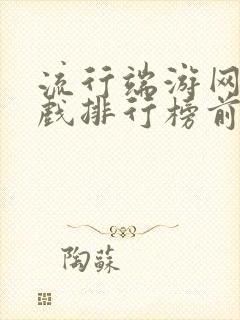 流行端游网
戏排行榜前
陶蘇